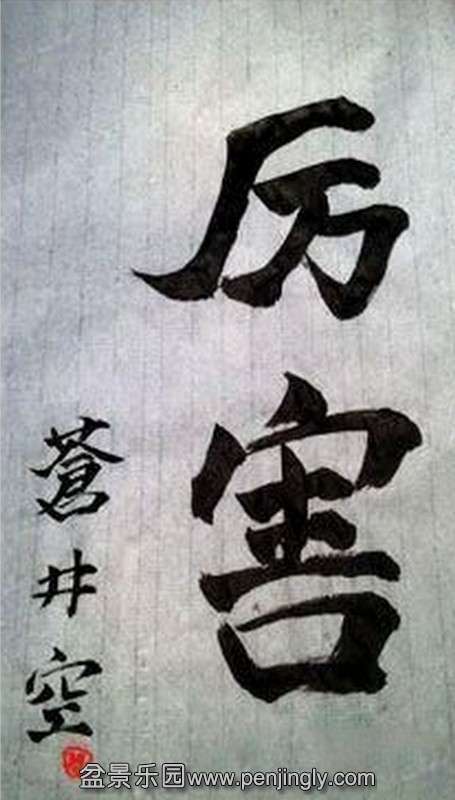 厉害
蒼井空
盆景乐园www.penjingly.com